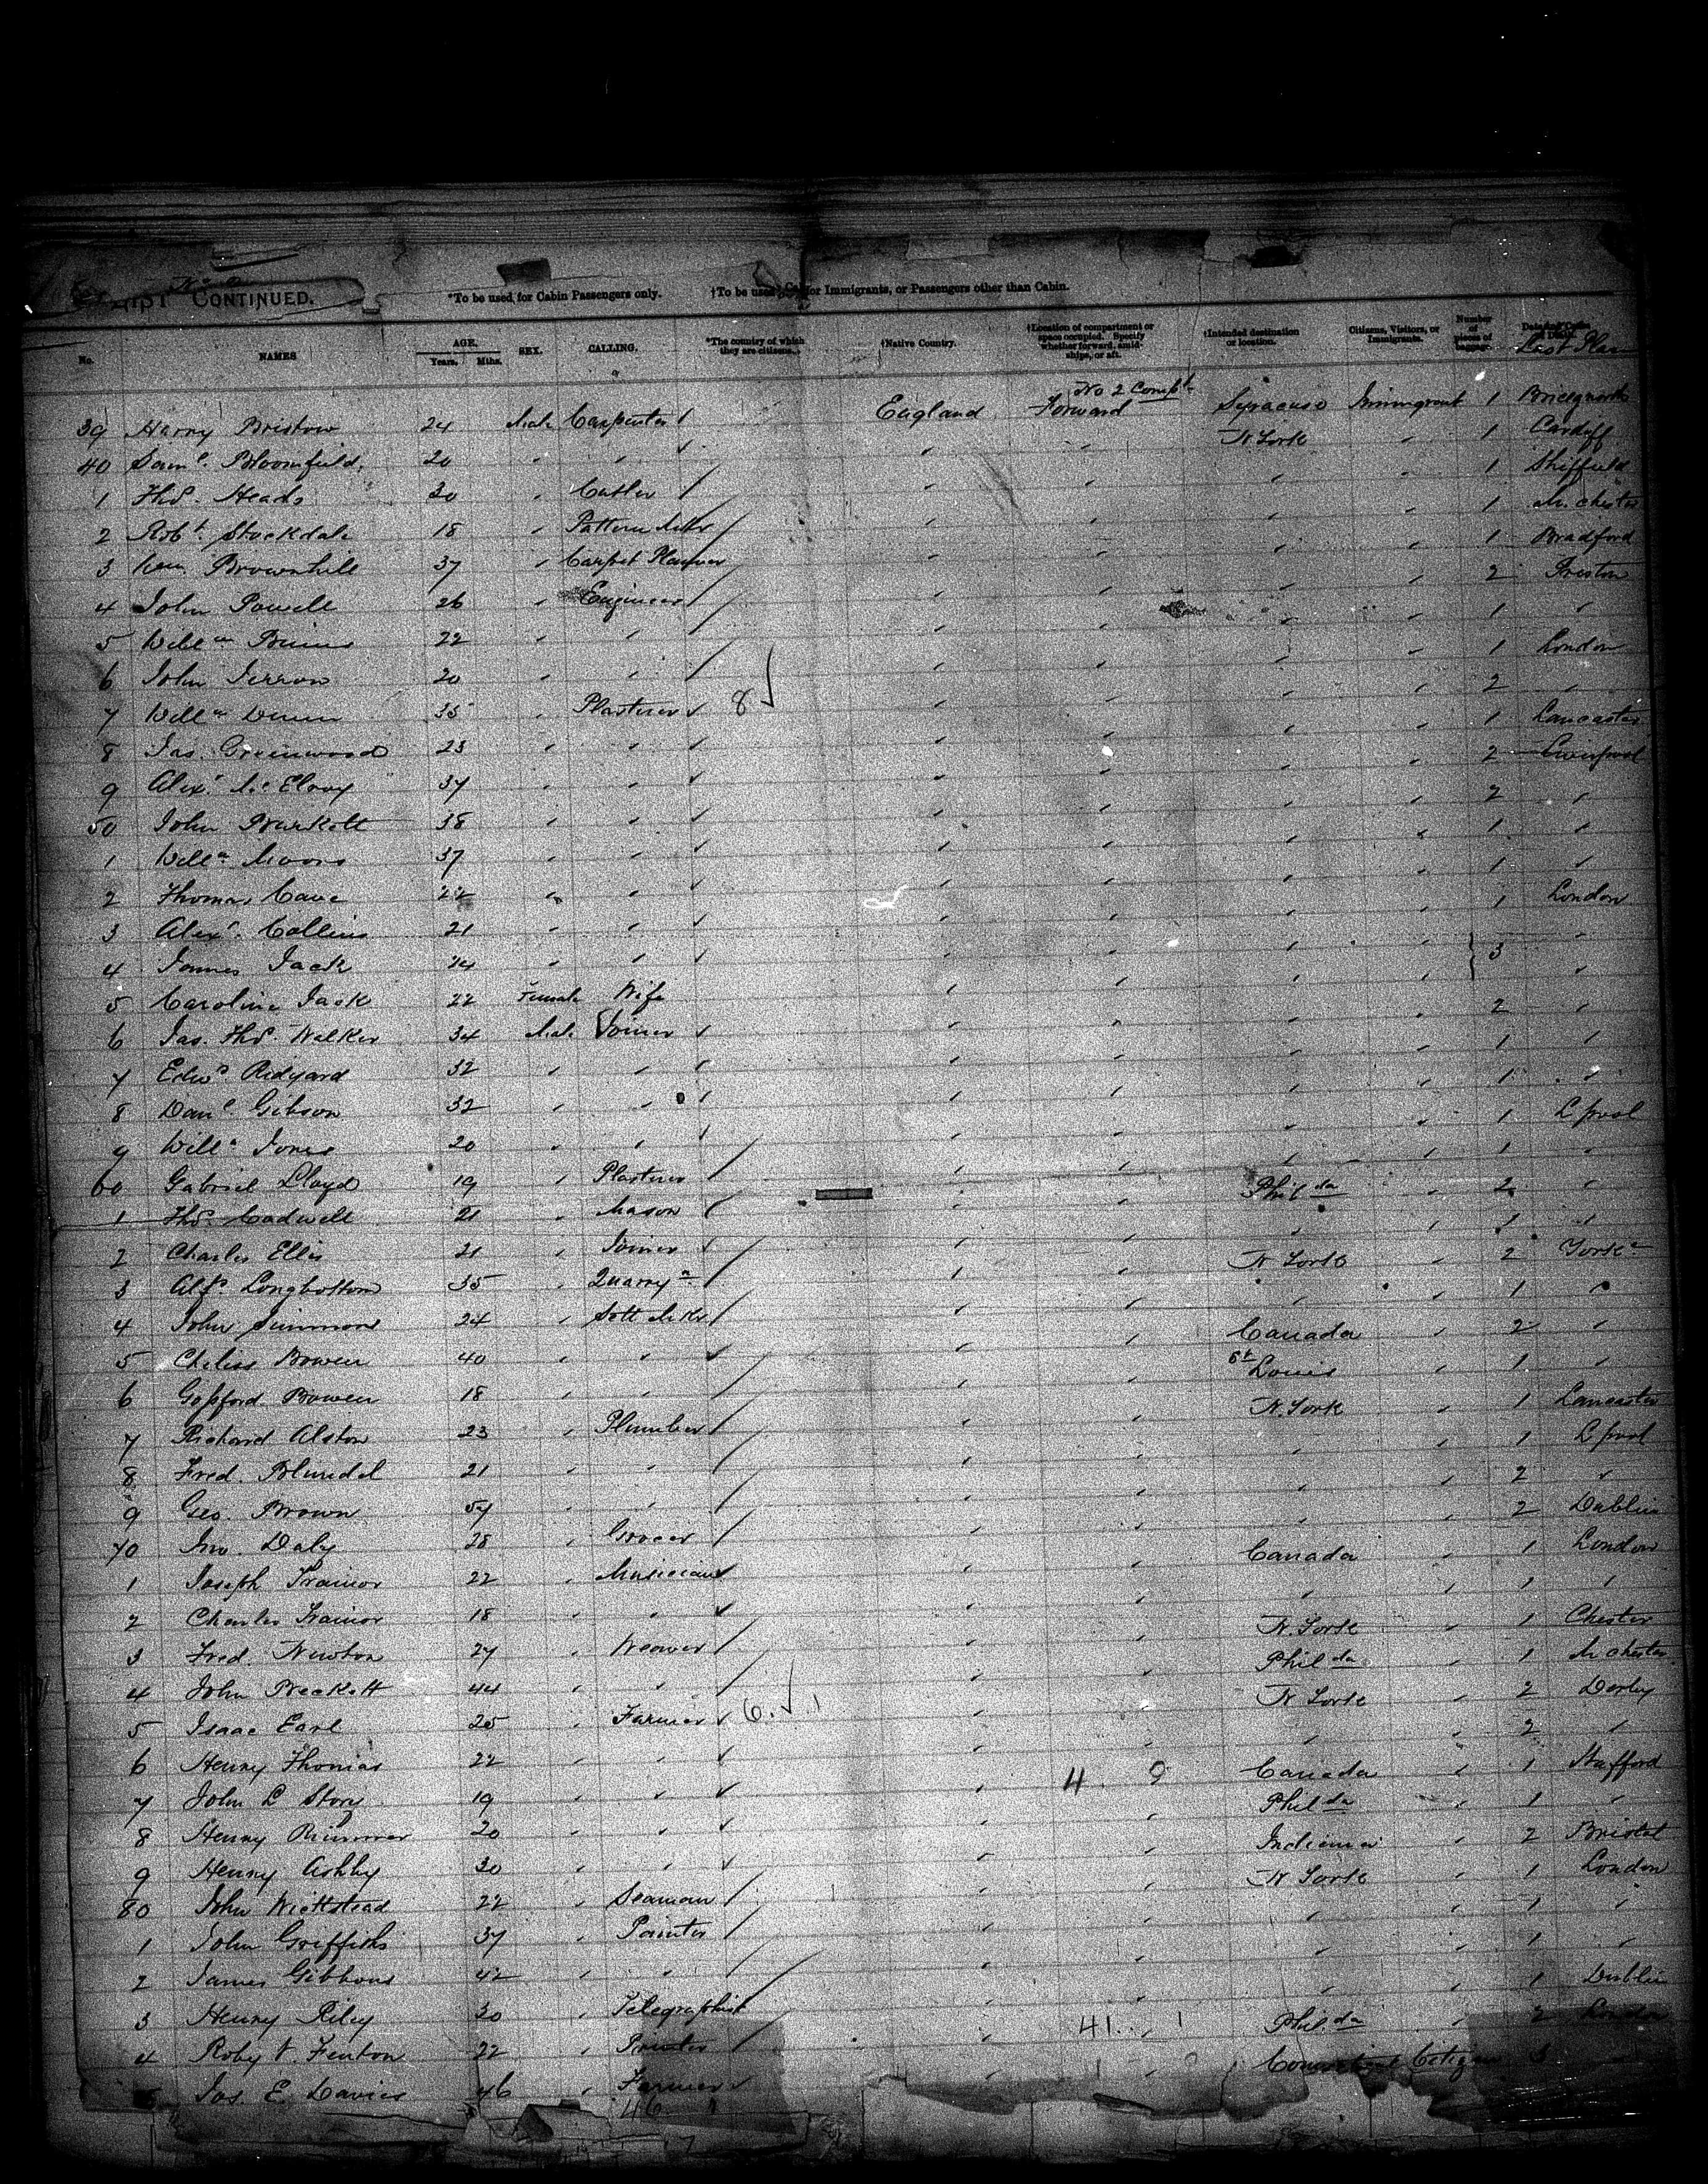 LIST CONTINUED.
*To be used for Cabin Passengers only. †To be used for Immigrants, or Passengers other than Cabin.
No. NAMES AGE. Years. Mths. SEX. CALLING. *The country of which they are citizens. †Native Country. †Location of compartment or space occupied. Specify whether forward, midships, or aft. †Intended destination or location. Citizens, Visitors, or Immigrants. Number of pieces of baggage. Last Place
No 2 Compt
39 Harry Bristow 24 Male Carpenter England Forward Syracuse Immigrant 1 Bridgnorth
40 Saml. Bloomfield 20 " " " " N York " 1 Cardiff
1 Thos. Heads 30 " Cutler " " " " 1 Sheffield
2 Robt. Stockdale 18 " Pattern Mkr " " " " 1 M.chester
3 Wm. Brownhill 37 " Carpet Planner " " " " 1 Bradford
4 John Powell 26 " Engineer " " " " 2 Preston
5 Willm 22 " " " " " " 1 "
6 John 20 " " " " " " 1 London
7 Willm Dunn 35 " Plasterer 8 " " " " 2 "
8 Jas. Greenwood 23 " " " " " " 1 Lancaster
9 Alexr. McElroy 37 " " " " " " 2 Liverpool
50 John Burkett 38 " " " " " " 2 "
1 Willm Moore 37 " " " " " " 1 "
2 Thomas Cave 22 " " " " " " 1 "
3 Alexr. Collins 21 " " " " " " 1 London
4 James Jack 24 " " " " " " 3 "
5 Caroline Jack 22 Female Wife " " " " "
6 Jas. Thos. Walker 34 Male Joiner " " " " 2 "
7 Edwd. Ridyard 32 " " " " " " 1 "
8 Danl. Gibson 32 " " " " " " 1 "
9 Willm Jones 20 " " " " " " 1 L'pool
60 Gabriel Lloyd 19 " Plasterer " " " " 1 "
1 Thos. Cadwell 21 " Mason " " Philda " 2 "
2 Charles Ellis 21 " Joiner " " " " 1 "
3 Alfd. Longbottom 35 " Quarryn " " N York " 2 Yorke
4 John Simmons 24 " Sett Mkr " " " " 1 "
5 Bowen 40 " " " " Canada " 2 "
6 Gosford Bowen 18 " " " " St Louis " 1 "
7 Richard Alston 23 " Plumber " " N.York " 1 Lancaster
8 Fred. Blundel 21 " " " " " " 1 L'pool
9 Geo. Brown 57 " " " " " " 2 "
70 Jno. Daly 28 " Grocer " " " " 2 Dublin
1 Joseph Trainor 22 " Musician " " Canada " 1 London
2 Charles Trainor 18 " " " " " " 1 "
3 Fred. Newton 27 " Weaver " " N.York " 1 Chester
4 John Beckett 44 " " " " Philda " 1 M chester
5 Isaac Earl 25 " Farmer 6. " " N York " 2 Derby
6 Henry Thomas 22 " " " " " " 2 "
7 John L Story 19 " " " 4. 9 Canada " 1 Stafford
8 Henry Rimmer 20 " " " " Philda " 1 "
9 Henry Ashby 30 " " " " Indiana " 2 Bristol
80 John Wickstead 22 " Seaman " " N York " 1 London
1 John Griffiths 37 " Painter " " " " 1 "
2 James Gibbons 42 " " " " " " 1 "
3 Henry Riley 30 " Telegraphist " " " " 1 Dublin
4 Roby V. Fenton 22 " Printer " 41. 1 Philda " 2 London
5 Jas. E. Davies 46 " Farmer " " Connecticut Citizen 3
46